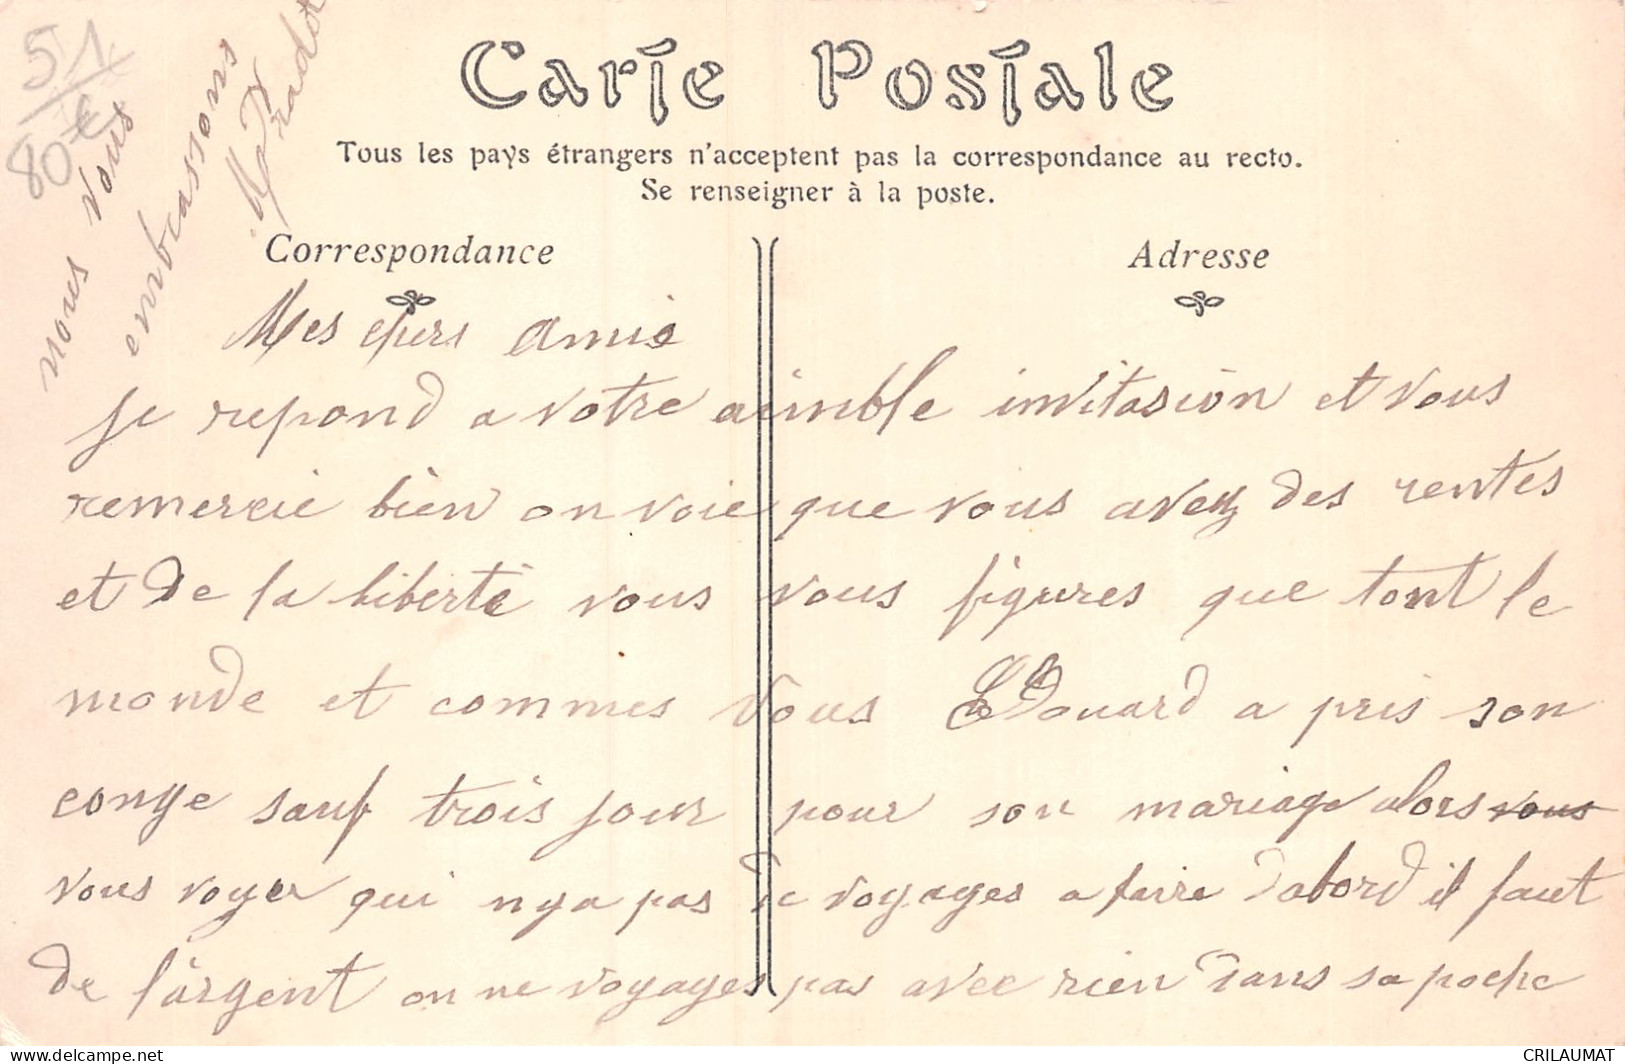 51
80€
Carte Postale
Tous les pays étrangers n'acceptent pas la correspondance au recto.
Se renseigner à la poste.
Correspondance
Adresse
Mes chers amis
je repond a votre aimble invitasion et vous
remercie bien on voie que vous avez des rentes
et de la liberté vous vous figures que tont le
monde et commes vous Edouard a pris son
conge sauf trois jour pour son mariage alors vous
vous voyer qui nya pas de voyages a faire dabord il faut
de l'argent on ne voyages pas avec rien dans sa poche
nous vous
embrassons
CRILAUMAT